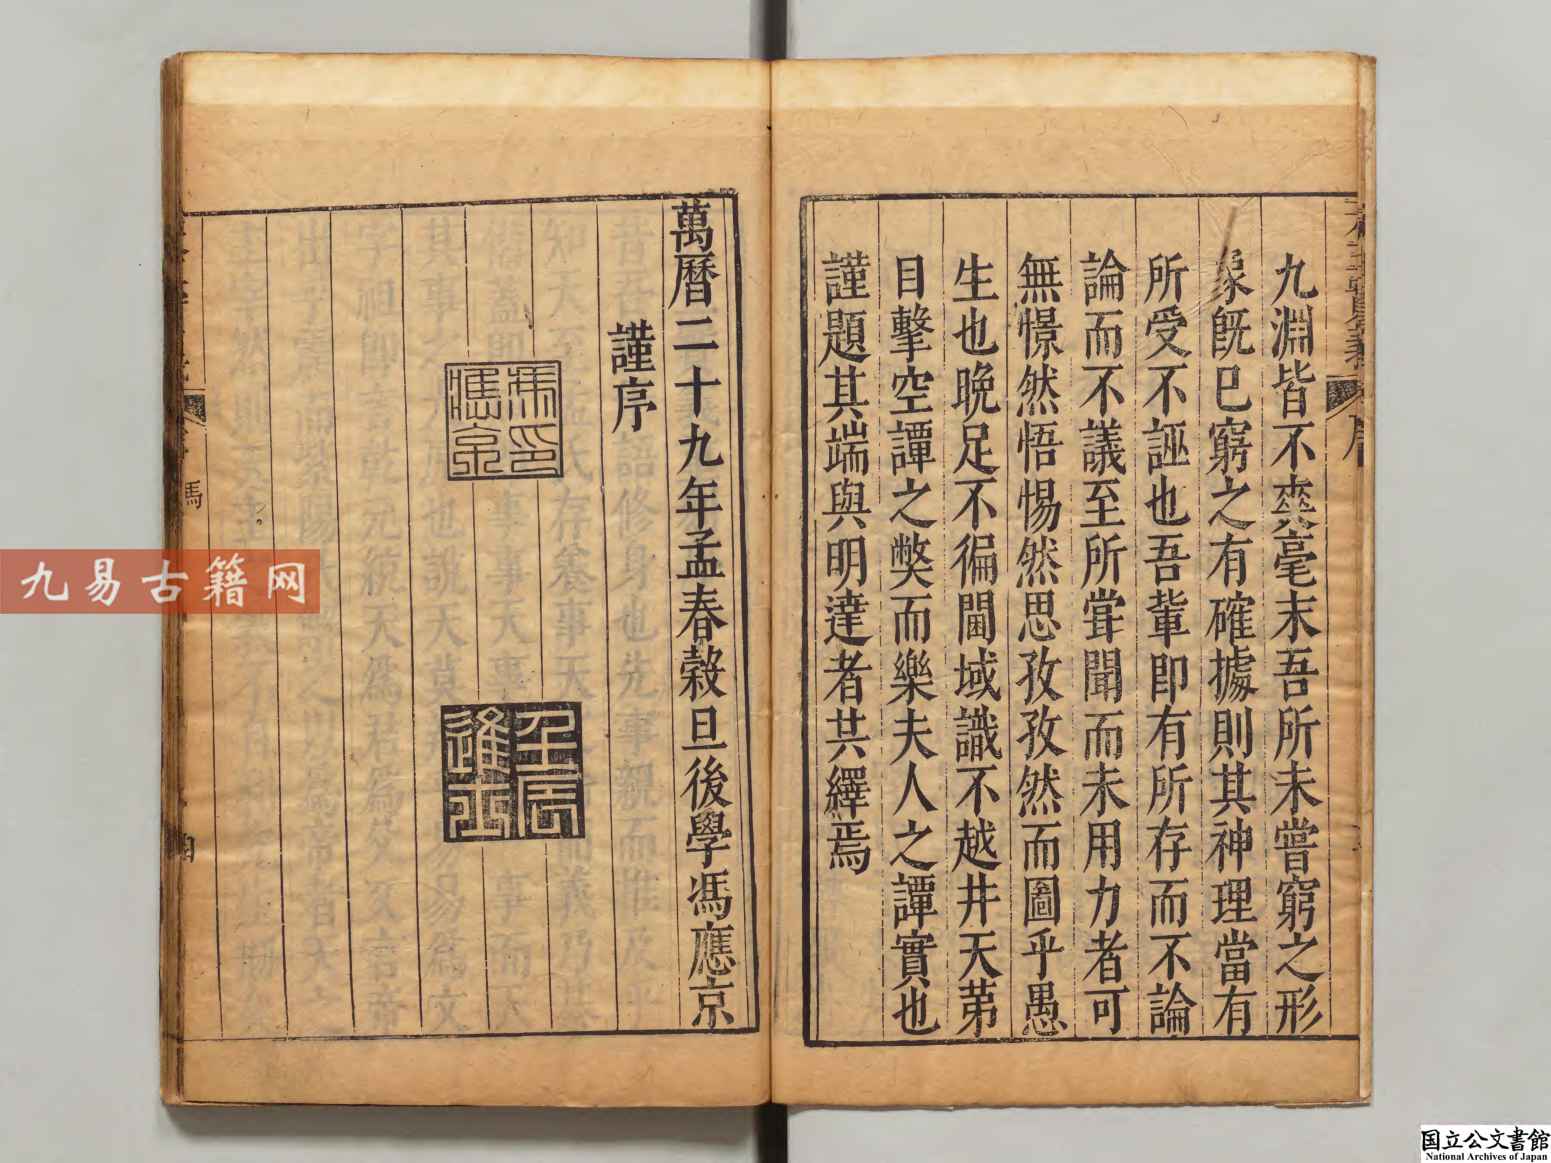 九淵皆不爽毫末吾所未嘗窮之形
象既已窮之有確據則其神理當有
所受不誣也吾軰即有所存而不論
論而不議至所甞聞而未用力者可
無憬然悟惕然思孜孜然而圖乎愚
生也晩足不徧閫域識不越井天第
目擊空譚之獘而樂夫人之譚實也
謹題其端與明達者共繹焉
萬曆二十九年孟春穀旦後學馮應京
謹序
壬辰
進士
序
馮
四
九易古籍网
国立公文書館
National Archives of Japan